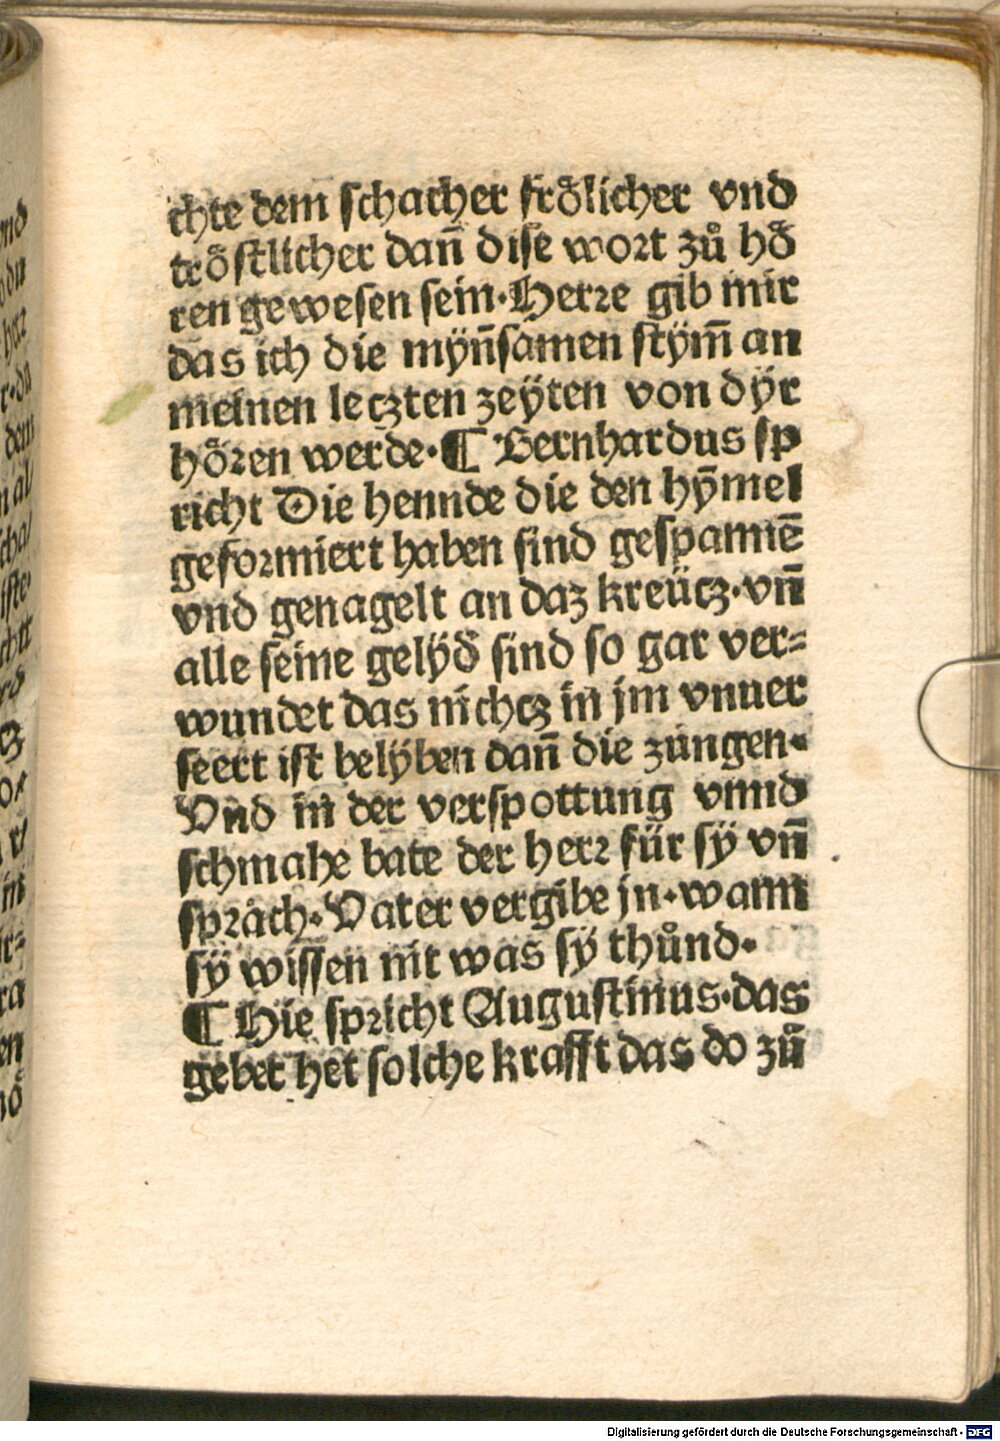 chte dem schacher frőlicher vnd
trőstlicher dan̄ dise wort zů hő
ren gewesen sein·Herꝛe gib mir
das ich die myn̄samen stÿm̄ an
meinen leczten zeÿten von dÿr
hőꝛen werde·¶ Bernhardus sp
richt Die hennde die den hȳmel
gefoꝛmiert haben sind gespannē
vnd genagelt an daz kreücz·vn̄
alle seine gelÿď sind so gar ver⸗
wundet das nichcz in jm vnuer
seert ist belÿben dan̄ die zungen·
Vnd in der verspottung vnnd
schmahe bate der herꝛ für sÿ vn̄
spꝛach·Vater vergibe jn·wann
sÿ wissen nit was sÿ thůnd·
¶ Hie spꝛicht Augustinus·das
gebet het solche krafft das do zů
Digitalisierung gefördert durch die Deutsche Forschungsgemeinschaft - DFG